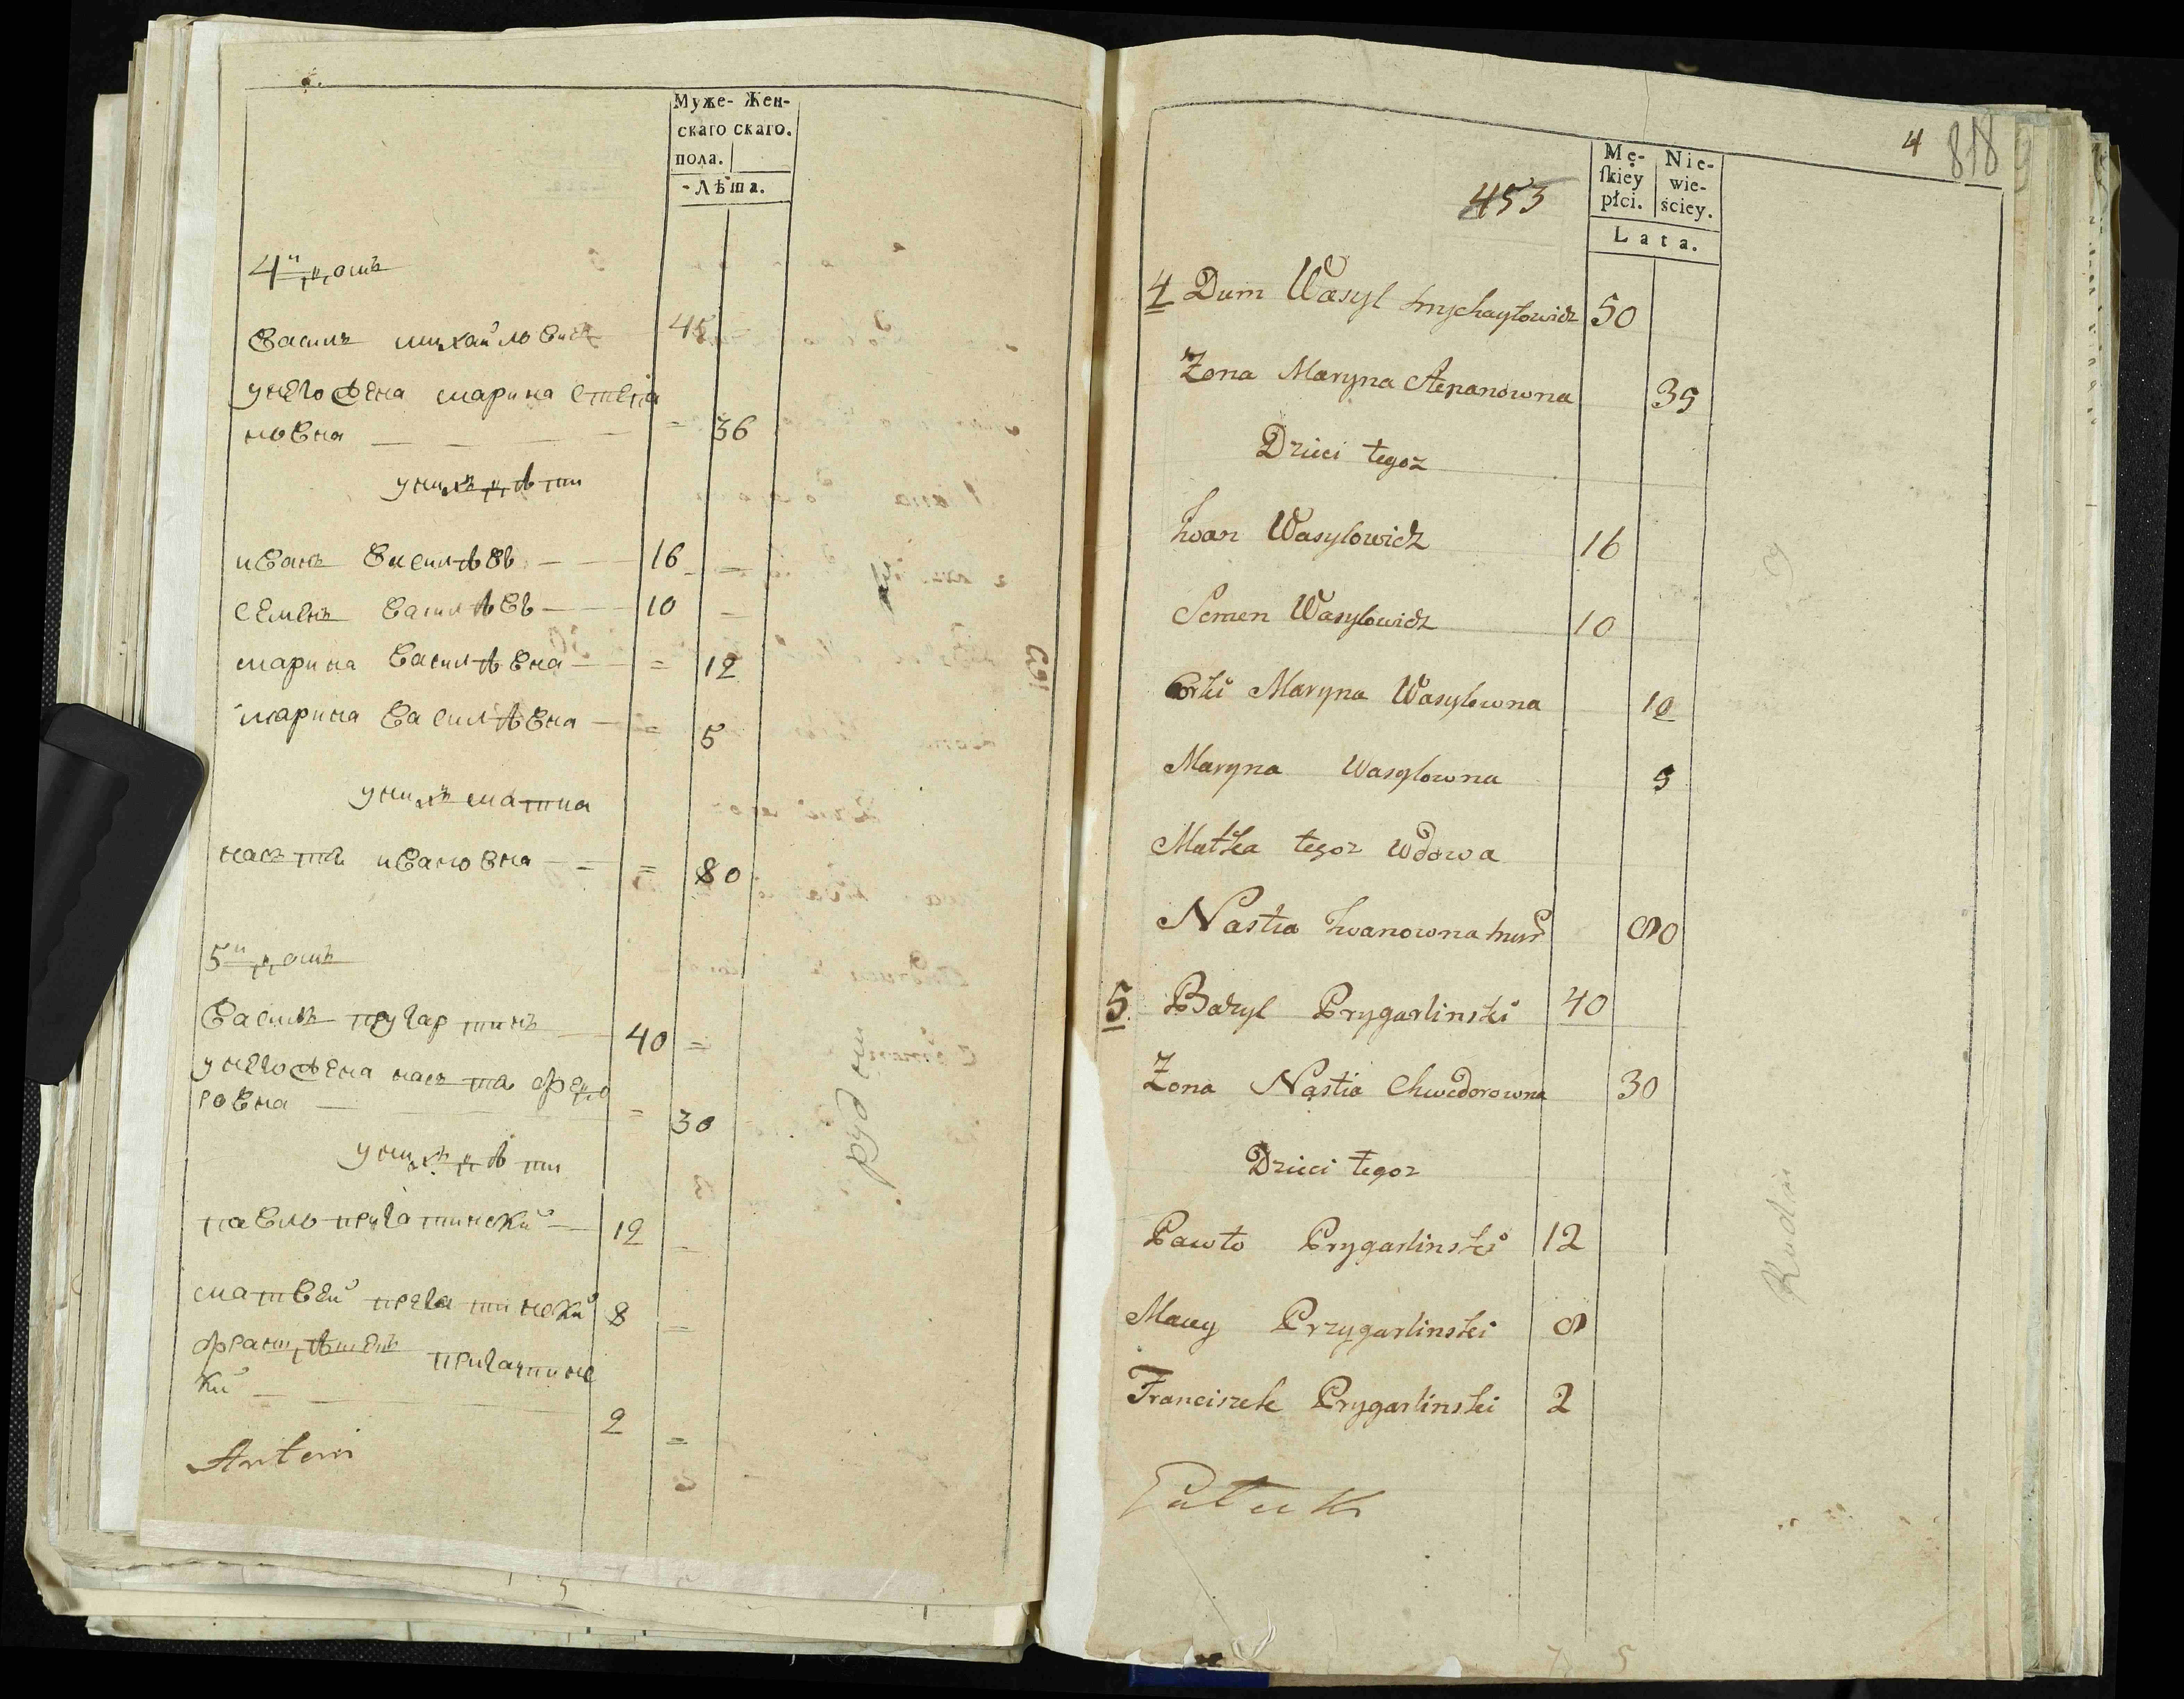 Муже- Жен-
скаго скаго.
пола.
Лѣта.
4й домъ
Василь михайловичъ 45
унего жена марина степа
новна 36
унихъ дѣти
иванъ василѣвъ 16
семенъ василѣвъ 10
марина василѣвна 12
марина василѣвна 5
унихъ мати
настя ивановна 80
5й домъ
Василь 40
унего жена настя федо
ровна 30
унихъ дѣти
павло 12
матвей 8
2
Antoni
4 818
453
Mę-
skiey
płci.
Nie-
wie-
ściey.
Lata.
4 Dum Wasyl Mychayłowicz 50
Zona Maryna Stepanowna 35
Dzieci tegoz
Iwan Wasylowicz 16
Semen Wasylowicz 10
Corki Maryna Wasylowna 12
Maryna Wasylowna 5
Matka tegoz Wdowa
Nastia Iwanowna 80
5. Bazyl Prygarlinski 40
Zona Nastia Chwedorowna 30
Dzieci tegoz
Pawło Prygarlinski 12
Macey Przygarlinski 8
Franciszek Prygarlinski 2